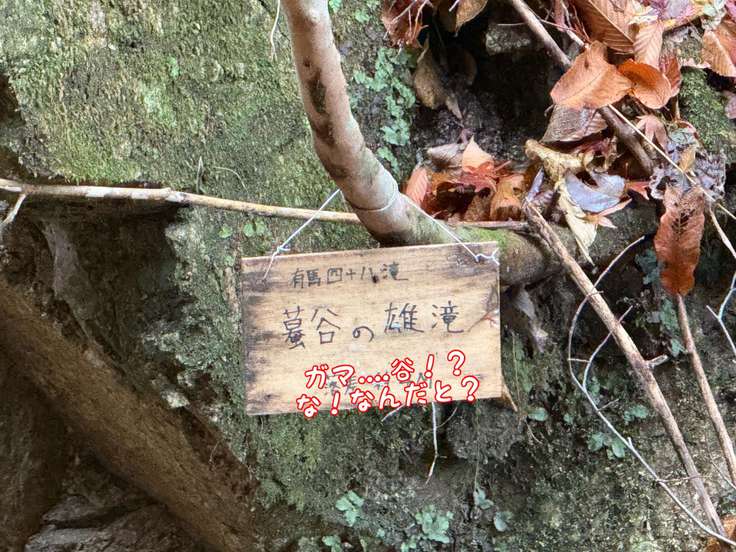 有馬四十八滝
蟇谷の雄滝
ガマ....谷!?
な!なんだと?